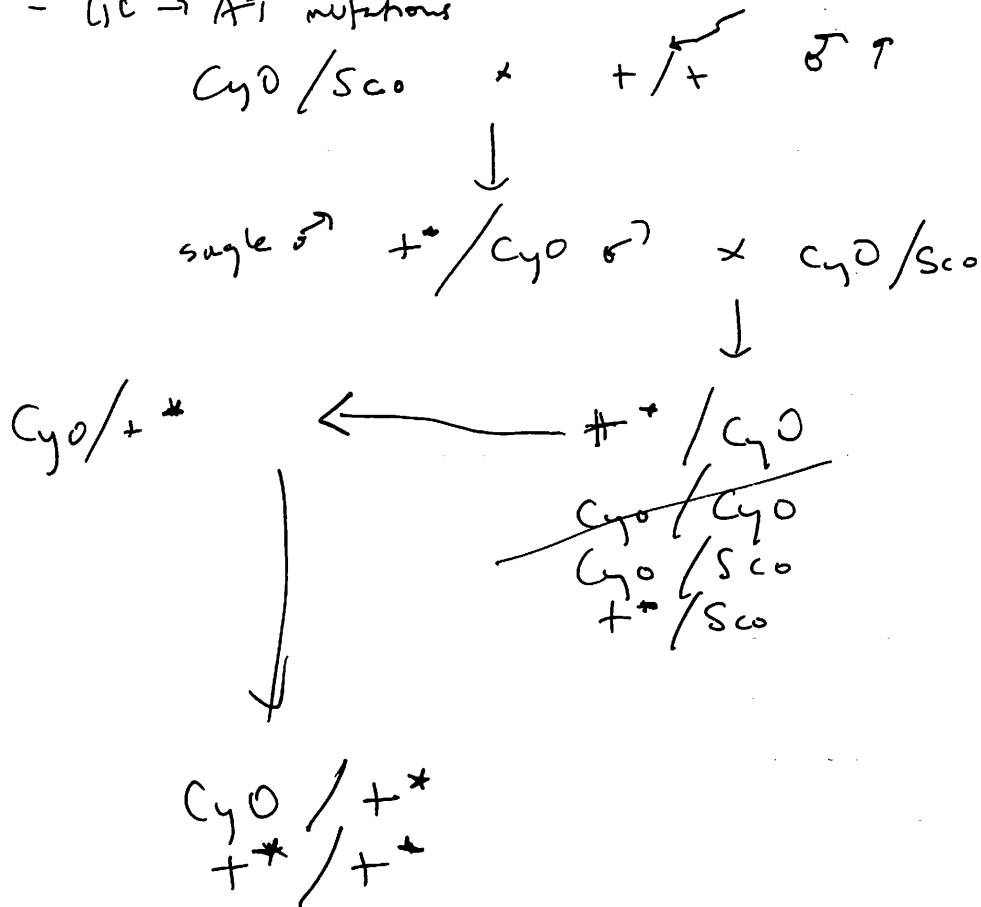 - GC → AT mutations
CyO / Sco × + / + ♂
↓
single ♂ +* / CyO ♂ × CyO / Sco
↓
CyO / +* ← +* / CyO
CyO / CyO
CyO / Sco
+* / Sco
↓
CyO / +*
+* / +*